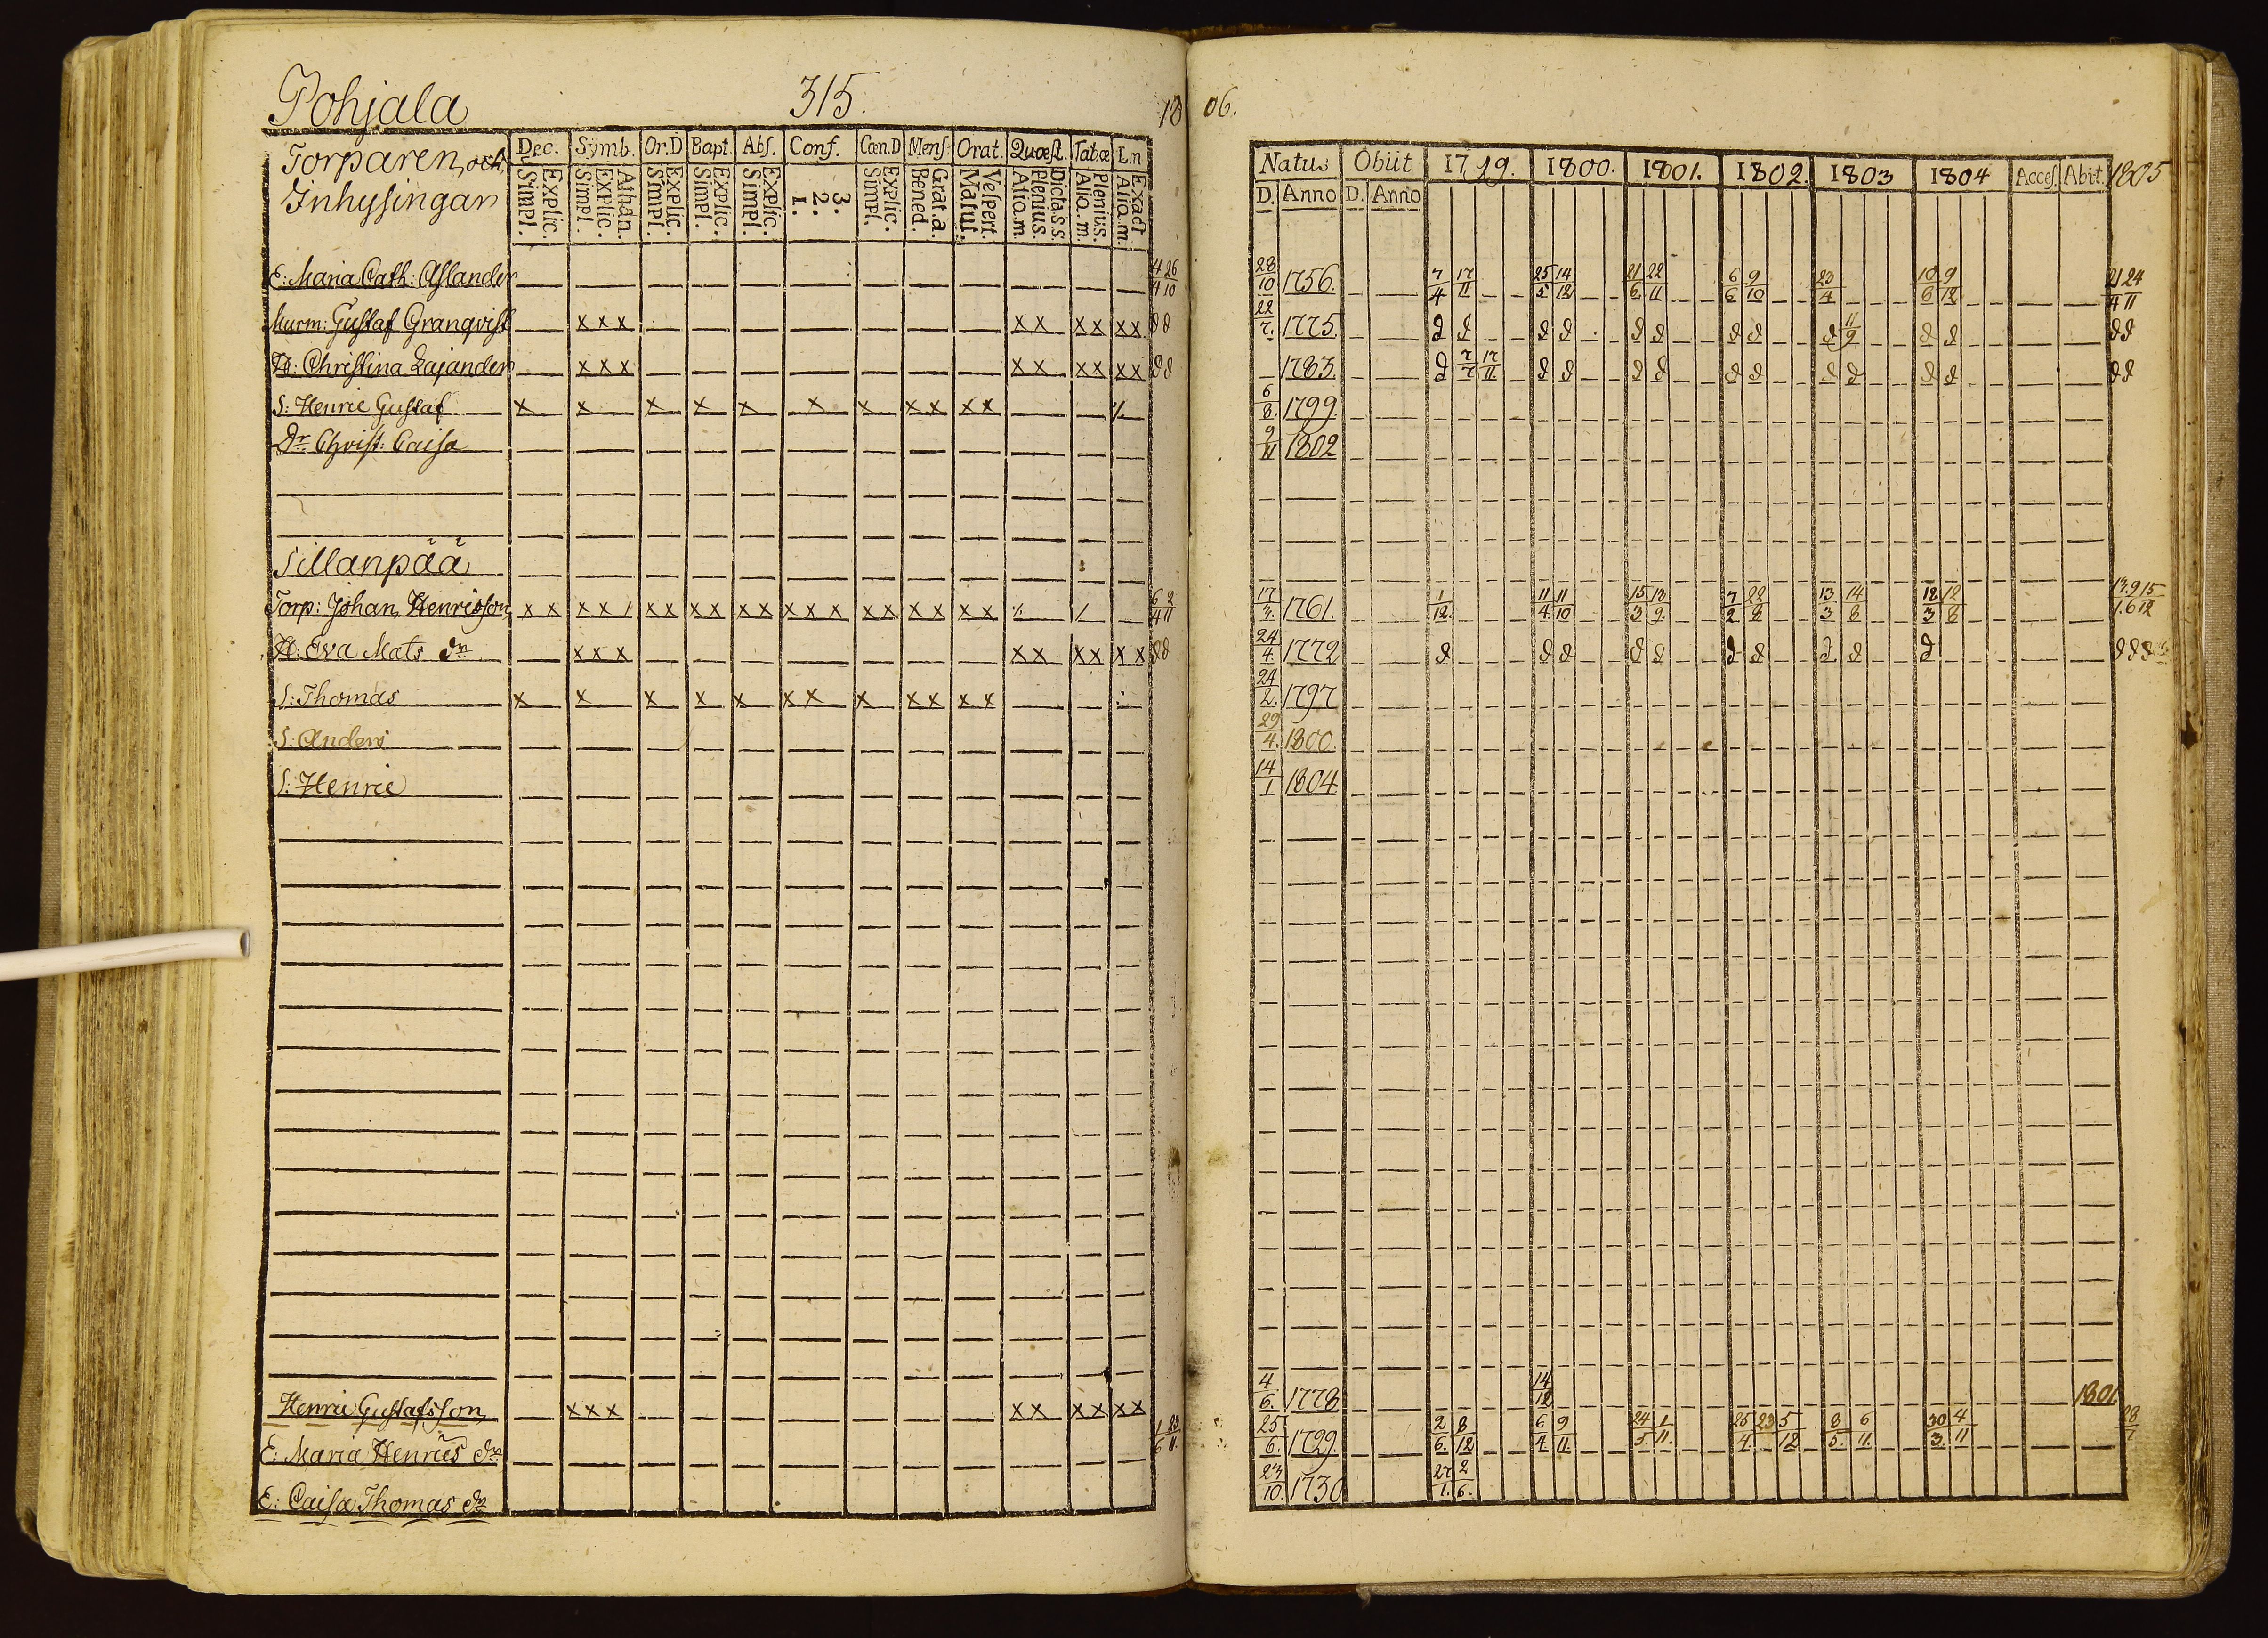 Pohjala 315. 18 06.
Torparen, och
Inhysingar
Dec. Symb. Or.D Bapt. Abs. Conf. Cœn.D Mens. Orat. Quæst. Tabæ L.n
Explic. Simpl. Athan. Explic. Simpl. Explic. Simpl. Explic. Simpl. Explic. Simpl. 3. 2. 1. Explic. Simpl. Grat.a. Bened. Vespert. Matut. Dicta.s.s. Plenius. Alio.m. Plenius. Alio.m. Exact Alio.m.
Natus Obiit 1799. 1800. 1801. 1802. 1803 1804 Acces. Abiit. 1805
D. Anno D. Anno
E: Maria Cath: Aslander 4/4 26/10 28/10 1756. 7/4 17/11 25/5 14/12 21/6 22/11 6/6 9/10 23/4 10/6 9/12 21/4 24/11
Murm: Gustaf Granqvist x x x x x x x x x d d 22/7. 1775. d d d d d d d d d 11/9 d d d d
H: Christina Lajander x x x x x x x x x d d 1783. d 7/7 17/11 d d d d d d d d d d d d
S: Henric Gustaf x x x x x x x x x x x 6/8. 1799
Dr Christ: Caisa 9/11 1802
Sillanpää
Torp: Johan Henricsson x x x x / x x x x x x x x x x x x x x x 6/4 2/11 17/3. 1761. 1/12. 11/4. 11/10 15/3 13/9. 7/2 22/8 13/3 14/8 18/3 12/8 13.9 15/1.6 12
H: Eva Mats dr x x x x x x x x x d d 24/4. 1772 d d d d d d d d d d d d d
S: Thomas x x x x x x x x x x x x 24/2. 1797
S: Anders 29/4. 1800.
S: Henric 14/1 1804
Henric Gustafsson x x x x x x x x x 4/6. 1778 14/12 1801.
E: Maria Henrics dr 1/6 23/11. 25/6. 1729. 2/6. 8/12 6/4. 9/11. 24/5. 1/11. 26/4. 23 5/12 8/5. 6/11. 30/3. 4/11 28/7
E: Caisa Thomas dr 23/10. 1730 27/1. 2/6.